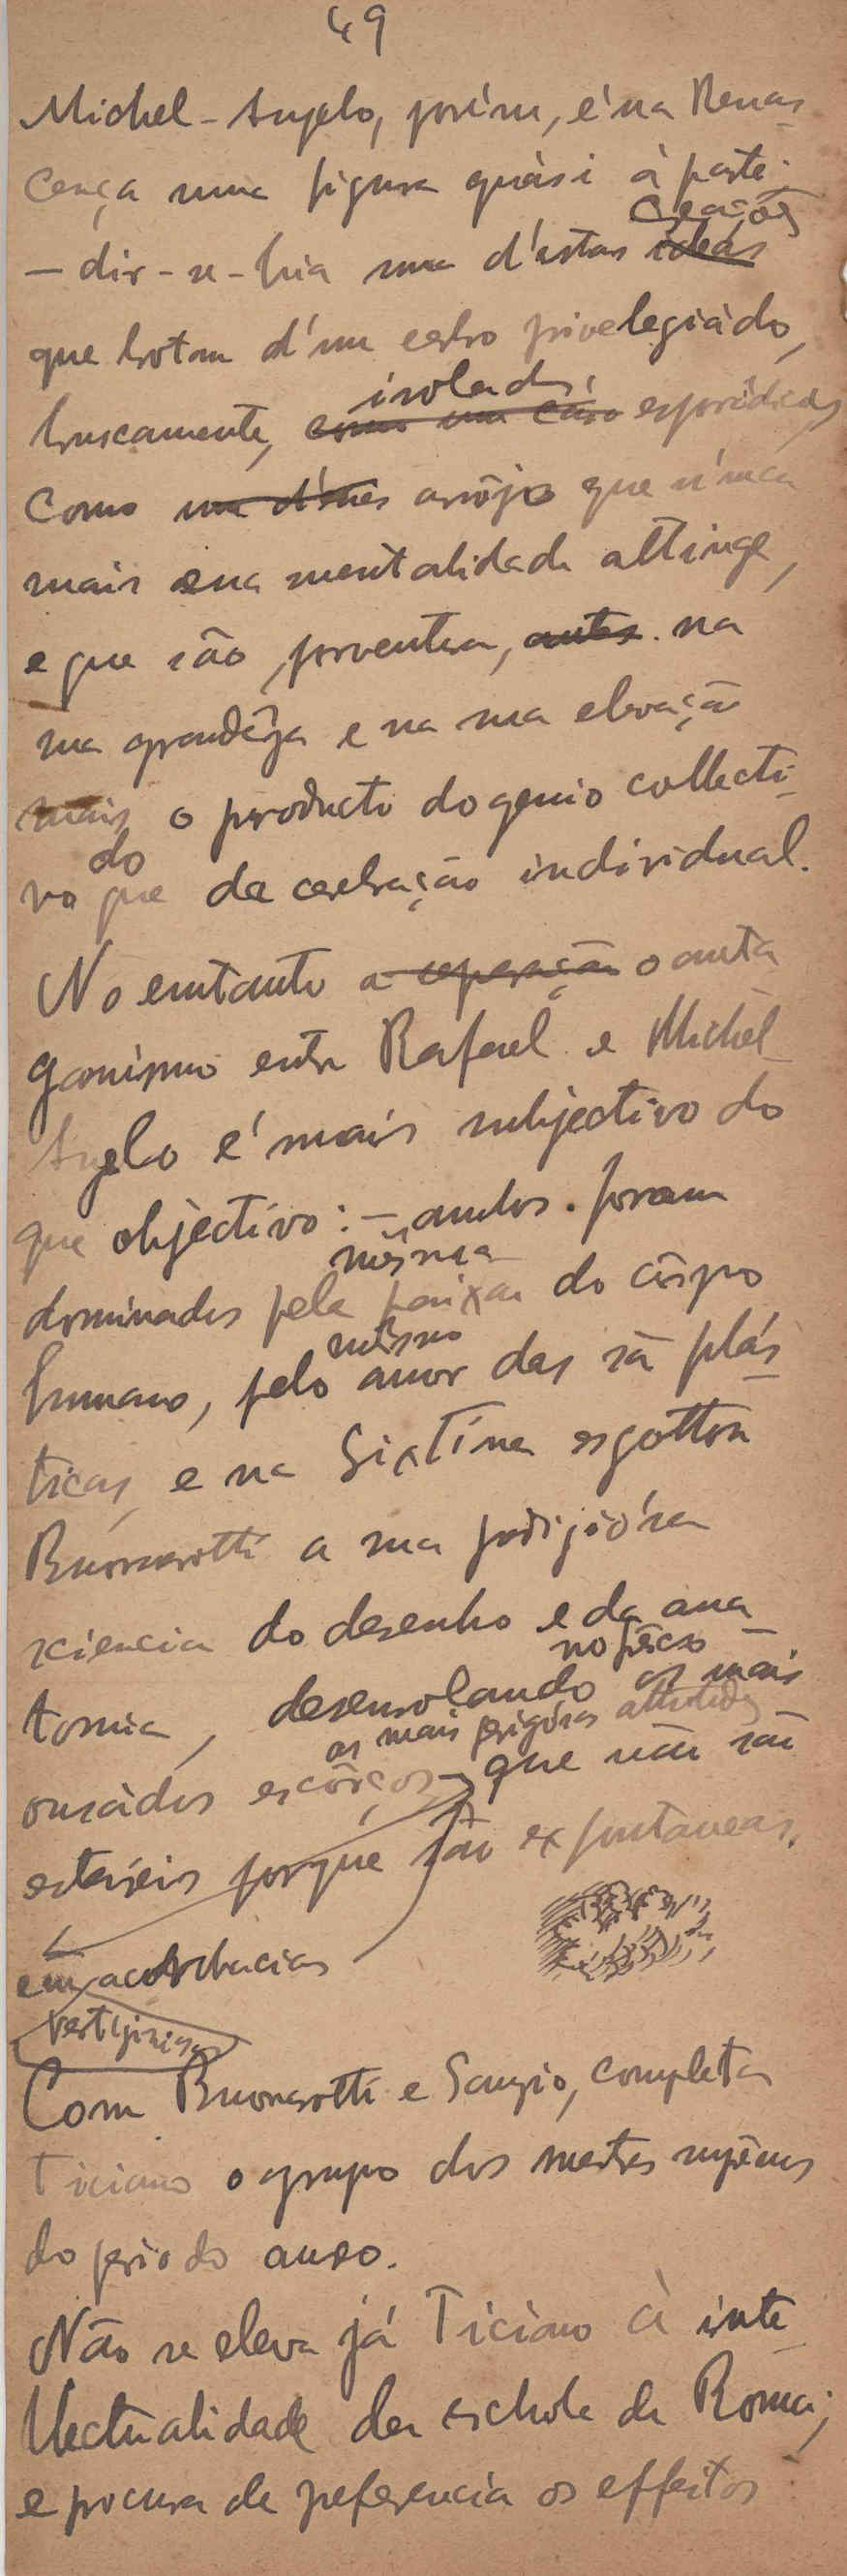 49
Michel-Angelo, porém, é na Renas-
cença uma figura quàsi à parte:
creações
— dir-se-hia uma d'estas ideas
que brotam d'um estro privelegiàdo,
isoladas,
bruscamente, como um caso esporádicas
como um d'esses arrôjo que nunca
mais sua mentalidade attinge,
e que são, porventura, antes na
sua grandêza e na sua elevação
mais o producto do genio collecti-
do
vo que da cerebração individual.
No emtanto a separação o anta-
gonismo entre Rafael e Michel-
Angelo é mais subjectivo do
que objectivo: — ambos foram
mêsma
dominados pela paixão do côrpo
mêsmo
humano, pelo amor das sã plás-
ticas, e na Sixtína esgottou
Buonarotti a sua prodigiósa
sciencia do desenho e da ana-
no têcto
tomia, desenrolando os mais
os mais perigósas attitudes
ousàdos escôrços que não são
estereis porque são expontaneas.
em acrobacias
vertiginosas
Com Buonarotti e Sanzio, completa
Ticiano o grupo dos mestres suprêmos
do periodo aureo.
Não se eleva já Ticiano à inte-
llectualidade da eschola de Roma;
e procura de preferencia os effeitos